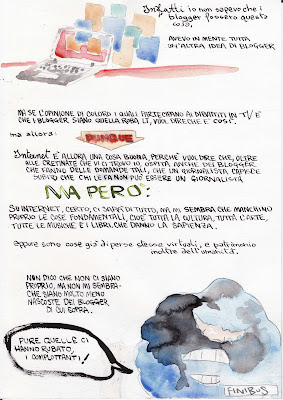 Infatti io non sapevo che i
blogger fossero questa
cosa,
AVEVO IN MENTE TUTTA
UN'ALTRA IDEA DI BLOGGER
MA SE L'OPINIONE DI COLORO I QUALI PARTECIPANO AI DIBATTITI IN TV È
CHE I BLOGGER SIANO QUELLA ROBA LÌ, VUOL DIRE CHE È COSÌ.
ma allora:
DUNQUE
Internet È ALLORA UNA COSA BUONA, PERCHÉ VUOL DIRE CHE, OLTRE
ALLE CRETINATE CHE VI CI TROVO IO, OSPITA ANCHE DEI BLOGGER
CHE FANNO DELLE DOMANDE TALI, CHE UN GIORNALISTA CAPISCE
SUBITO CHE CHI LE FA NON PUÒ ESSERE UN GIORNALISTA
MA PERÒ:
SU INTERNET, CERTO, CI SARÀ DI TUTTO, MA MI SEMBRA CHE MANCHINO
PROPRIO LE COSE FONDAMENTALI, CIOÈ TUTTA LA CULTURA, TUTTA L'ARTE,
TUTTE LE MUSICHE E I LIBRI CHE DANNO LA SAPIENZA.
eppure sono cose già di per se stesse virtuali, e patrimonio
inoltre dell'umanità.
NON DICO CHE NON CI SIANO
PROPRIO, MA NON MI SEMBRA
CHE SIANO MOLTO MENO
NASCOSTE DEI BLOGGER
DI CUI SOPRA.
PURE QUELLE CI
HANNO RUBATO,
I COMPLOTTANTI!
FINIBUS